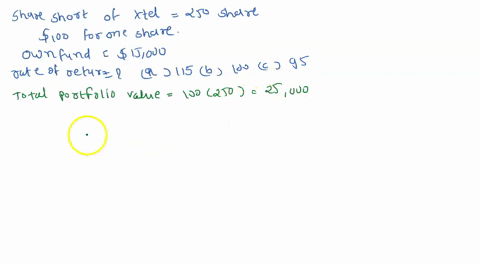 Share short of Xtel = 250 share
$100 for one share.
own fund c $15,000
rate of return = ? (a) 115 (b) 100 (c) 95
Total portfolio value = 100 (250) = 25,000